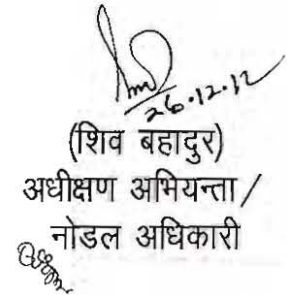 26.12.12
(शिव बहादुर)
अधीक्षण अभियन्ता/
नोडल अधिकारी